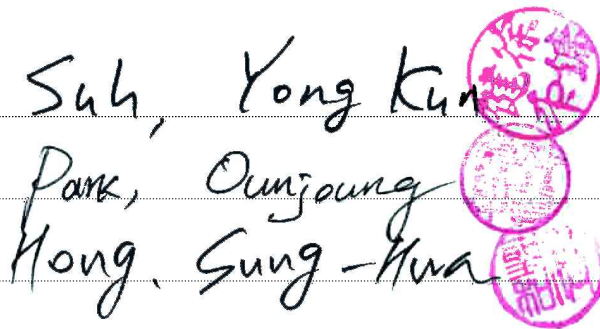 Suh, Yong Kun
Park, Ounjoung
Hong, Sung-Hwa